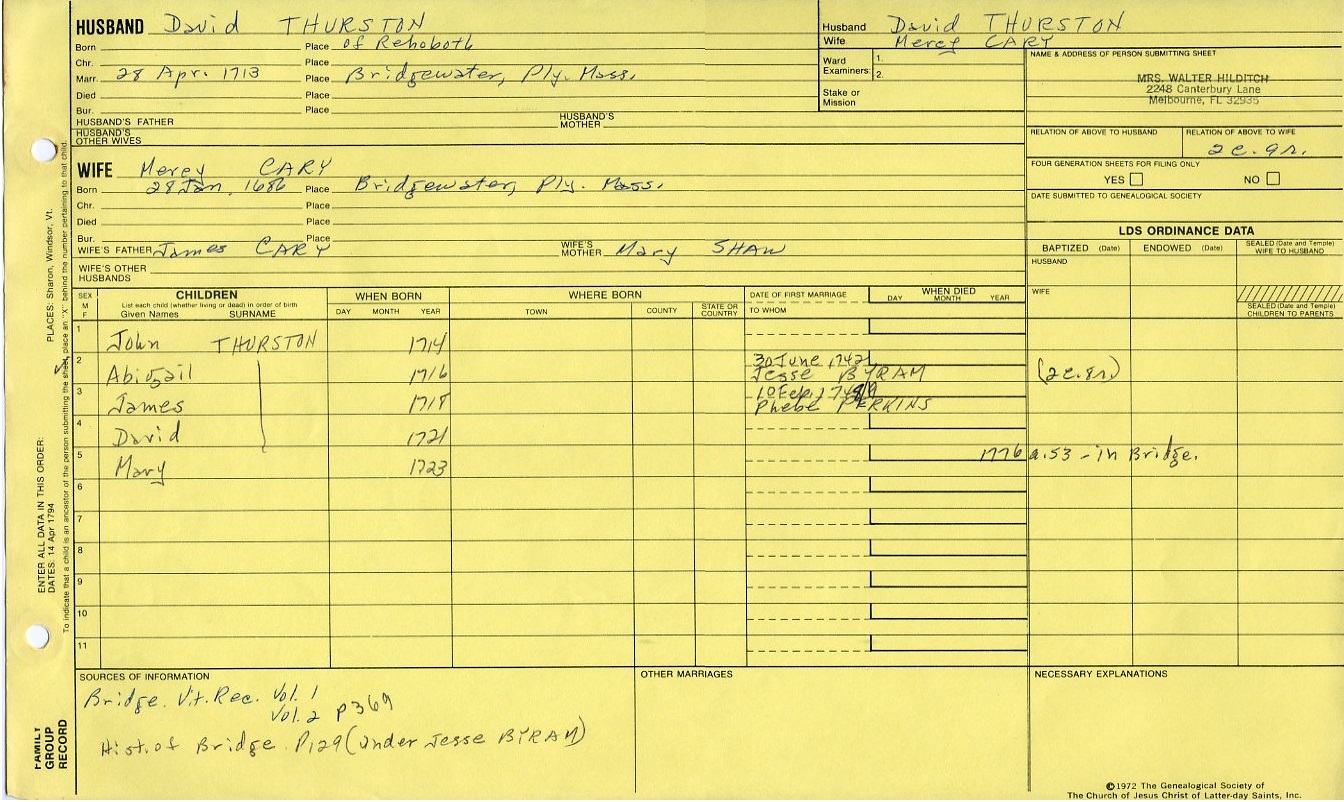 HUSBAND David THURSTON
Born Place of Rehoboth
Chr. Place
Marr. 28 Apr. 1713 Place Bridgewater, Ply. Mass.
Died Place
Bur. Place
HUSBAND'S FATHER HUSBAND'S MOTHER
HUSBAND'S OTHER WIVES
Husband David THURSTON
Wife Mercy CARY
Ward Examiners: 1.
2.
Stake or Mission
NAME & ADDRESS OF PERSON SUBMITTING SHEET
MRS. WALTER HILDITCH
2248 Canterbury Lane
Melbourne, FL 32935
RELATION OF ABOVE TO HUSBAND RELATION OF ABOVE TO WIFE
2c.gr.
FOUR GENERATION SHEETS FOR FILING ONLY
YES NO
DATE SUBMITTED TO GENEALOGICAL SOCIETY
WIFE Mercy CARY
Born 28 Jan. 1686 Place Bridgewater, Ply. Mass.
Chr. Place
Died Place
Bur. Place
WIFE'S FATHER James CARY WIFE'S MOTHER Mary SHAW
WIFE'S OTHER HUSBANDS
LDS ORDINANCE DATA
BAPTIZED (Date) ENDOWED (Date) SEALED (Date and Temple) WIFE TO HUSBAND
HUSBAND
WIFE
SEALED (Date and Temple) CHILDREN TO PARENTS
SEX M F CHILDREN WHEN BORN WHERE BORN DATE OF FIRST MARRIAGE WHEN DIED
List each child (whether living or dead) in order of birth
Given Names SURNAME DAY MONTH YEAR TOWN COUNTY STATE OR COUNTRY TO WHOM DAY MONTH YEAR
1 John THURSTON 1714
2 Abigail 1716 30 June 1742 Jesse BYRAM (2c.gr)
3 James 1718 10 Feb. Phebe PERKINS
4 David 1721
5 Mary 1723 1776 a.53 - in Bridge.
6
7
8
9
10
11
SOURCES OF INFORMATION
Bridge. Vit. Rec. Vol. 1
Vol. 2 p369
Hist. of Bridge. P129 (under Jesse BYRAM)
OTHER MARRIAGES
NECESSARY EXPLANATIONS
©1972 The Genealogical Society of
The Church of Jesus Christ of Latter-day Saints, Inc.
FAMILY GROUP RECORD
ENTER ALL DATA IN THIS ORDER:
DATES: 14 Apr 1794
PLACES: Sharon, Windsor, Vt.
To indicate that a child is an ancestor of the person submitting the sheet, place an "X" behind the number pertaining to that child.